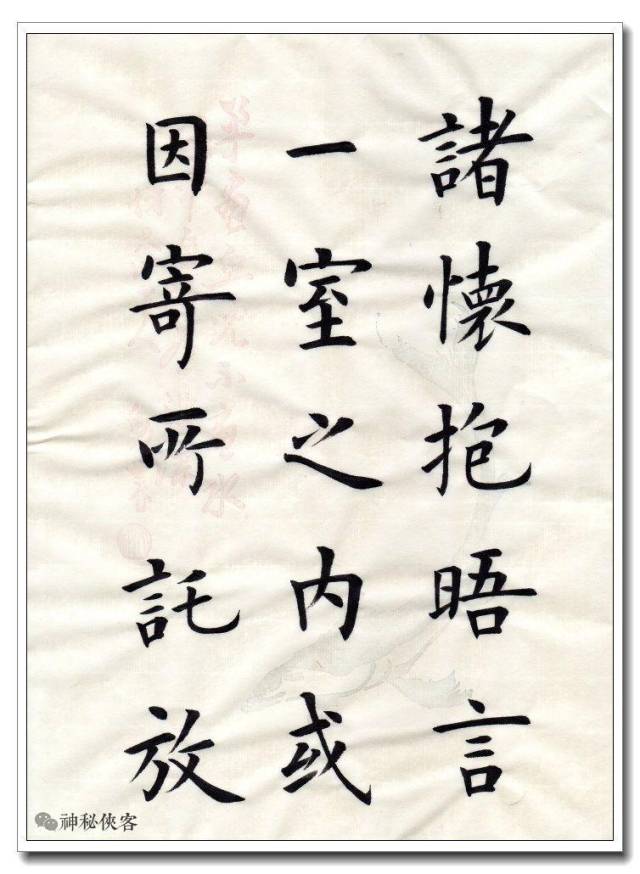 諸懷抱晤言
一室之内或
因寄所託放
神秘俠客